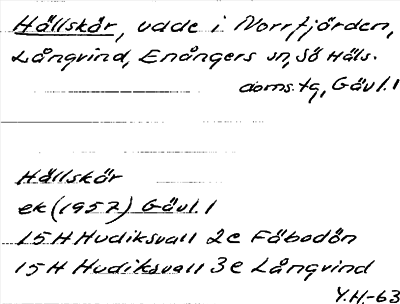 Hällskär, udde i Norrfjärden,
Långvind, Enångers sn, Sö Häls.
doms.tg, Gävl. l
Hällskär
ek (1957) Gävl. l
15H Hudiksvall 2e Fäbodön
15H Hudiksvall 3e Långvind
Y.H.-63